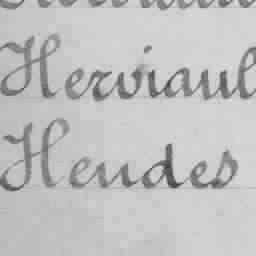 Herviaul
Hendes